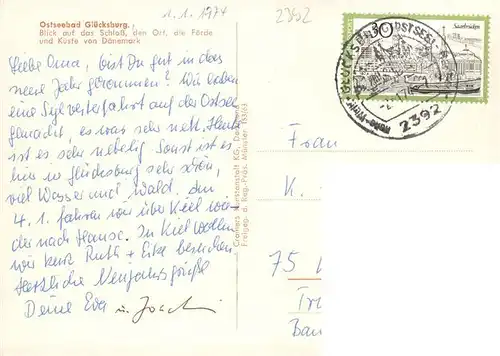 1.1.1974
2392
Ostseebad Glücksburg,
Blick auf das Schloß, den Ort, die Förde
und Küste von Dänemark
Liebe Oma, bist Du gut in das
neue Jahr gekommen? Wir haben
eine Sylvesterfahrt auf der Ostsee
gemacht, es war sehr nett. Heute
ist es sehr nebelig. Sonst ist es
hier in Glücksburg sehr schön,
viel Wasser und Wald. Am
4. 1. fahren wir über Kiel wie-
der nach Hause. In Kiel wollen
wir kurz Ruth + Eike besuchen.
Herzliche Neujahrsgrüße
Deine Eva u. Joachi
Cramers Kunstanstalt KG, Dortmund
Freigeg. d. Reg.-Präs. Münster
Saarbrücken
30
GLÜCKSBURG OSTSEE
2392
Frau
K.
75
Tr
Bau